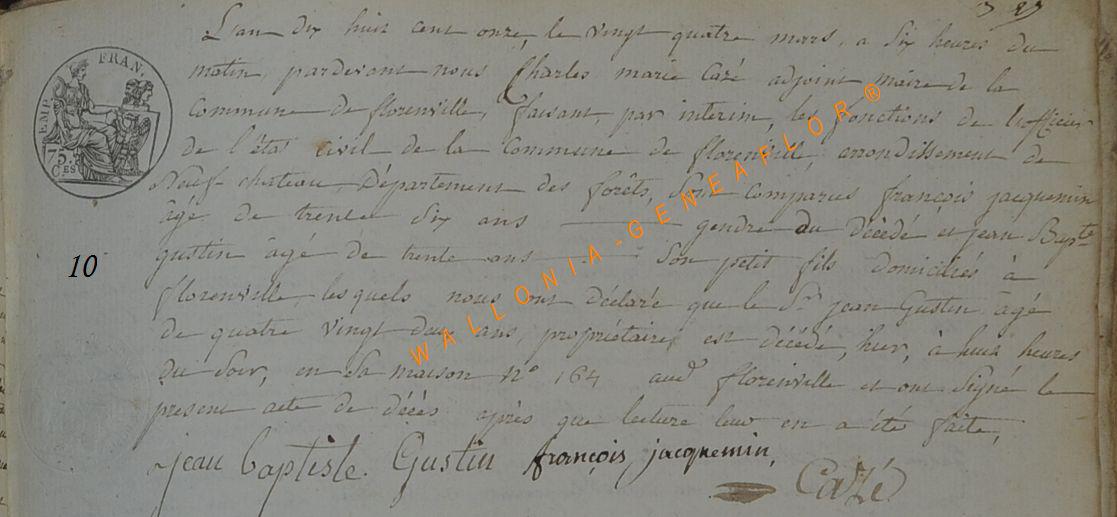 L'an dix huit cent onze, le vingt quatre mars, a six heures du
matin, pardevant nous Charles marie Cazé adjoint maire de la
Commune de florenville, faisant par interim, les fonctions de l'officier
de l'état civil de la Commune de florenville, arrondissement de
Neuf-chateau, Département des forêts, sont comparus françois jacquemin
âgé de trente six ans gendre du décédé et jean Bapte
gustin âgé de trente ans son petit fils domiciliés à
florenville, lesquels nous ont déclaré que le Sr jean Gustin âgé
de quatre vingt deux ans, propriétaire, est décédé, hier, à huit heures
du soir, en sa maison N° 164 aud florenville et ont signé le
present acte de décès après que lecture leur en a été faite,
jean baptiste Gustin françois jacquemin,
Cazé
EMP. FRAN.
75
CES
10
WALLONIA-GENEAFLOR®